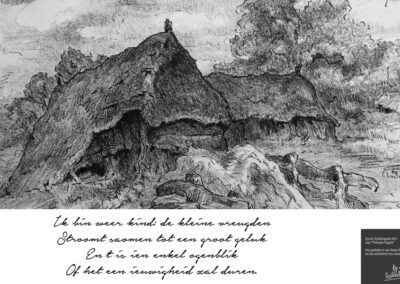 Ik bin weer kind: de kleine vreugden
Stroomt saomen tot een groot geluk
En t is ien enkel ogenblik
Of het een ieuwigheid zal duren.